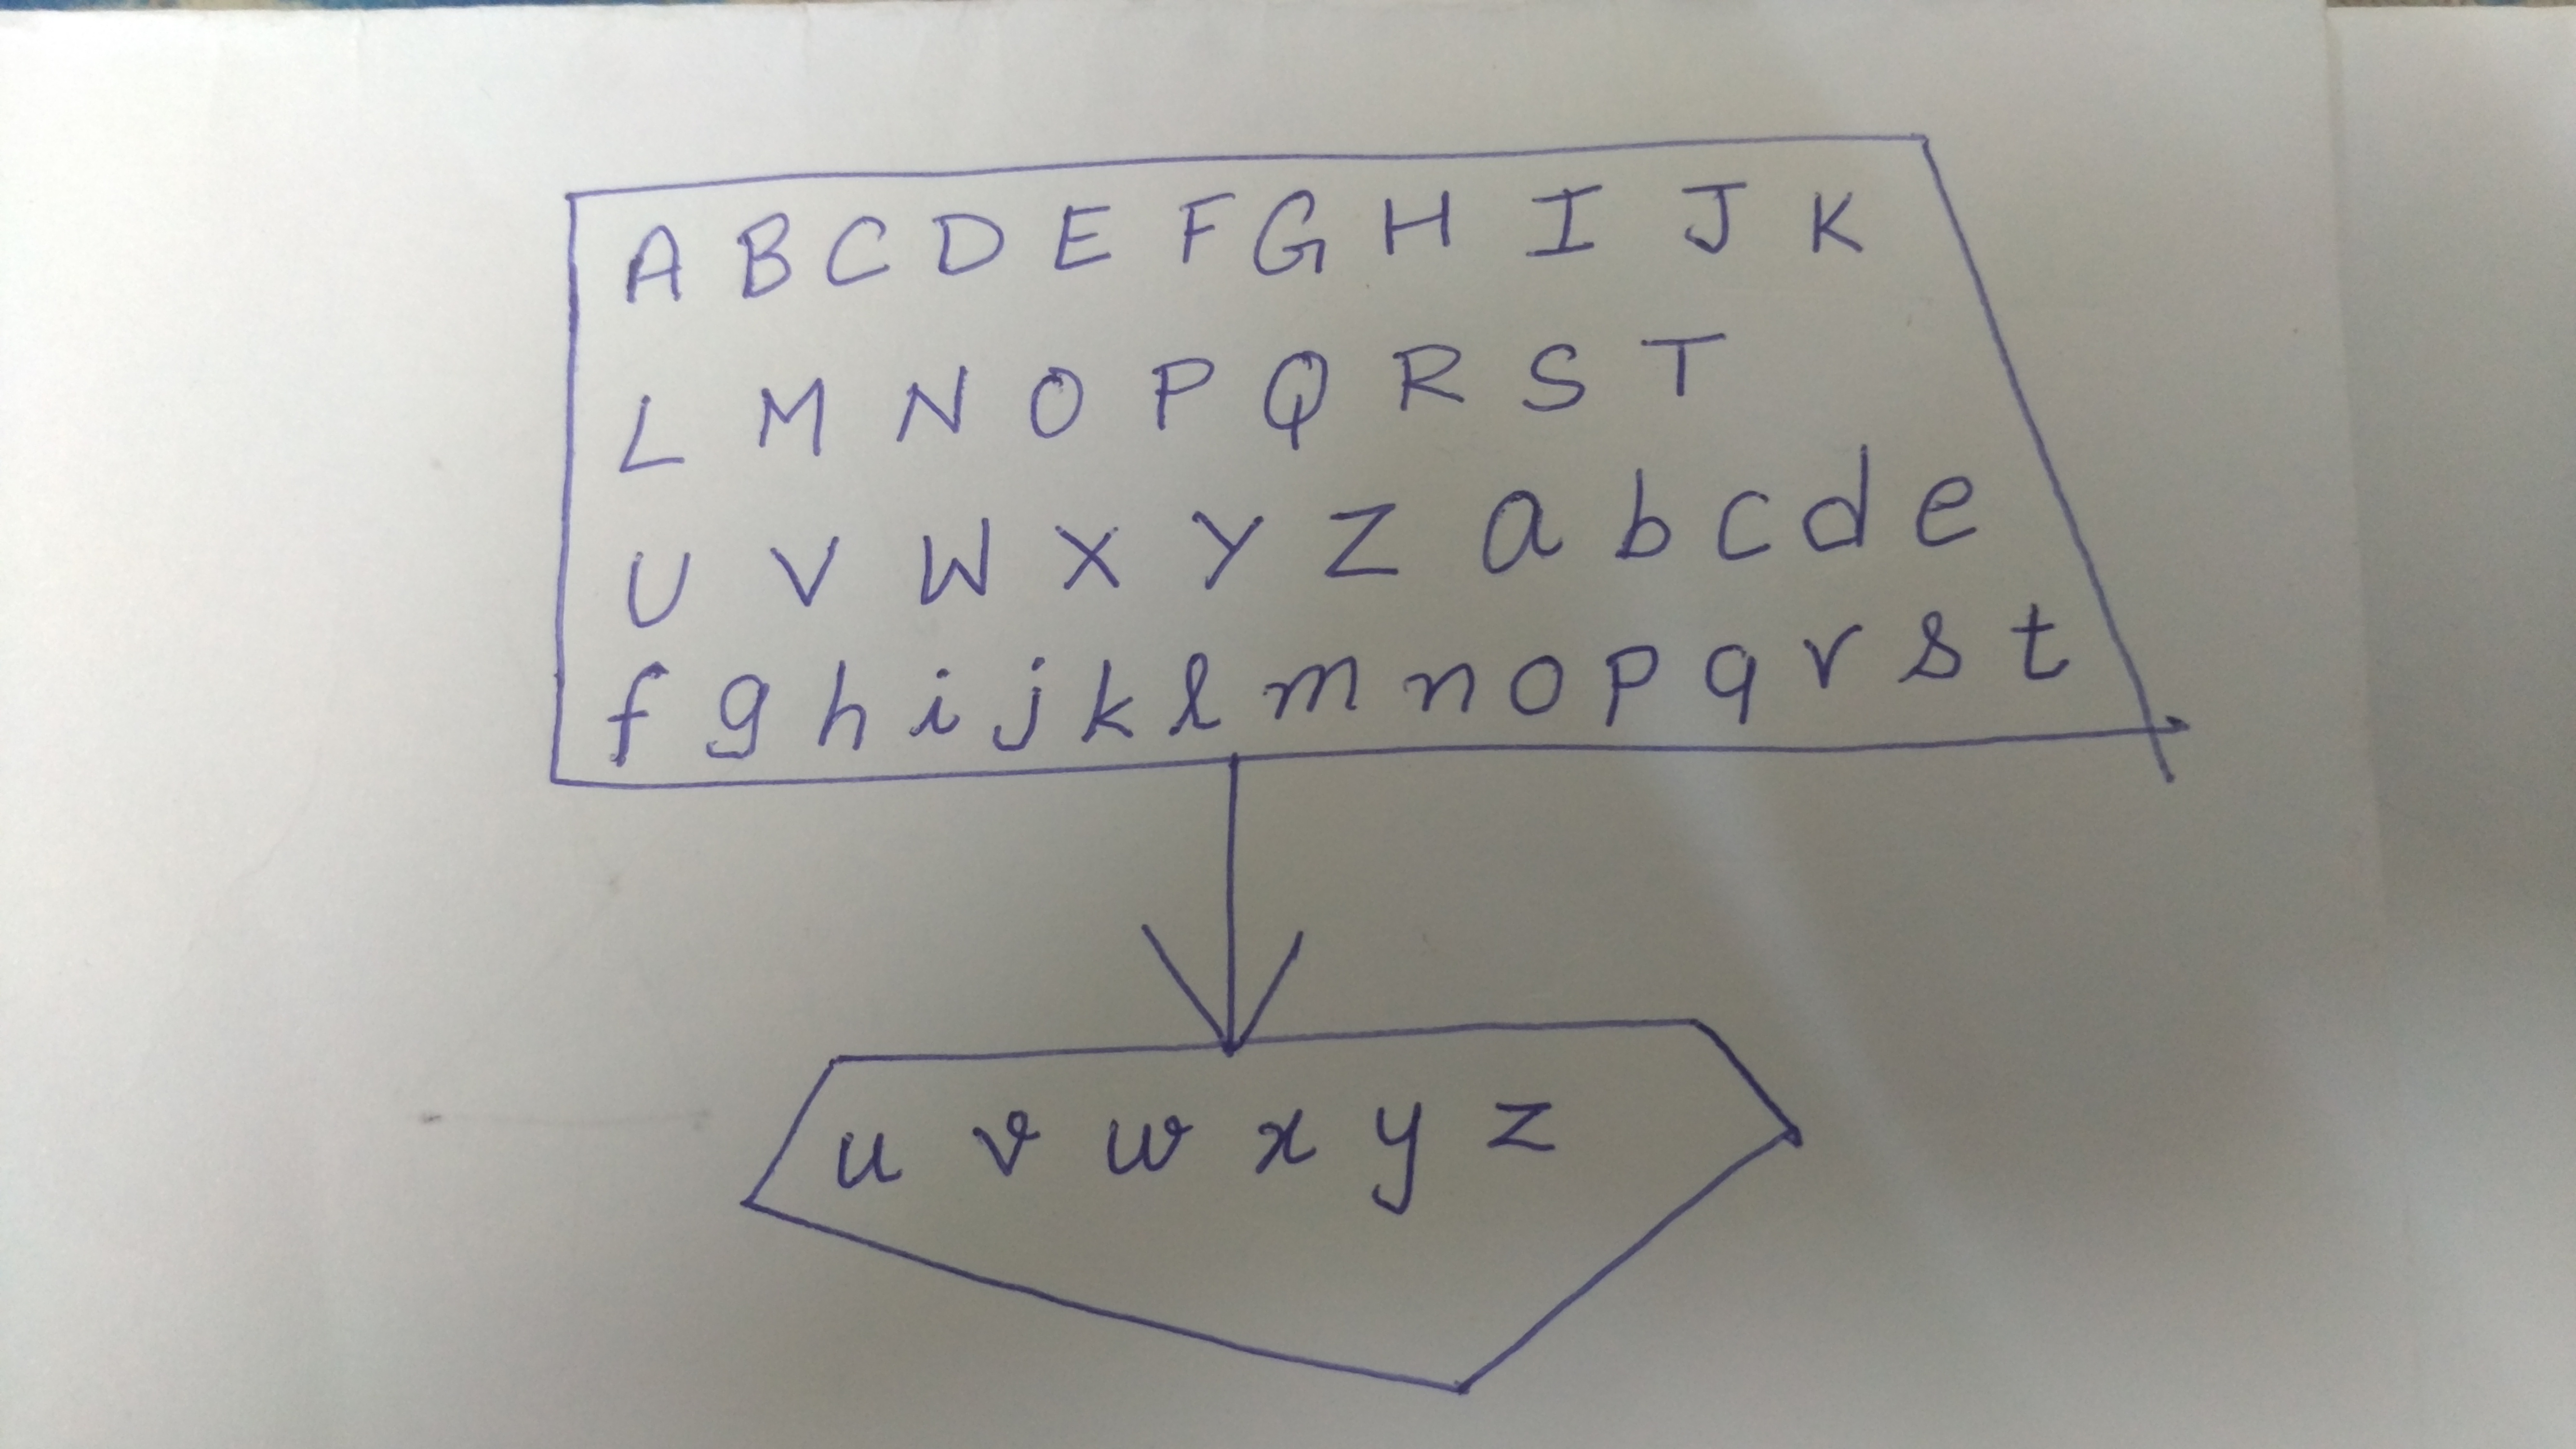 A B C D E F G H I J K
L M N O P Q R S T
U V W X Y Z a b c d e
f g h i j k l m n o p q r s t
u v w x y z